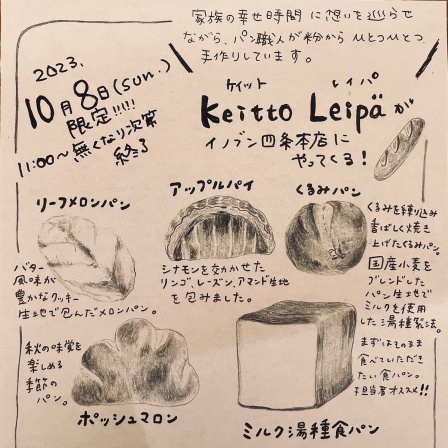 家族の幸せ時間に想いを巡らせ
ながら、パン職人が粉からひとつひとつ
手作りしています。
2023.
10月8日(sun.)
限定!!!!!
11:00〜無くなり次第
終了
ケイット レイパ
Keitto Leipäが
イノブン四条本店に
やってくる!
リーフメロンパン
バター
風味が
豊かなクッキー
生地で包んだメロンパン。
アップルパイ
シナモンを効かせた
リンゴ、レーズン、アマンド生地
を包みました。
くるみパン
くるみを練り込み
香ばしく焼き
上げたくるみパン。
秋の味覚を
楽しめる
季節の
パン。
ポッシュマロン
国産小麦を
ブレンドした
パン生地で
ミルクを使用
した湯種製法。
まずはそのまま
食べていただき
たい食パン。
担当者オススメ!!
ミルク湯種食パン